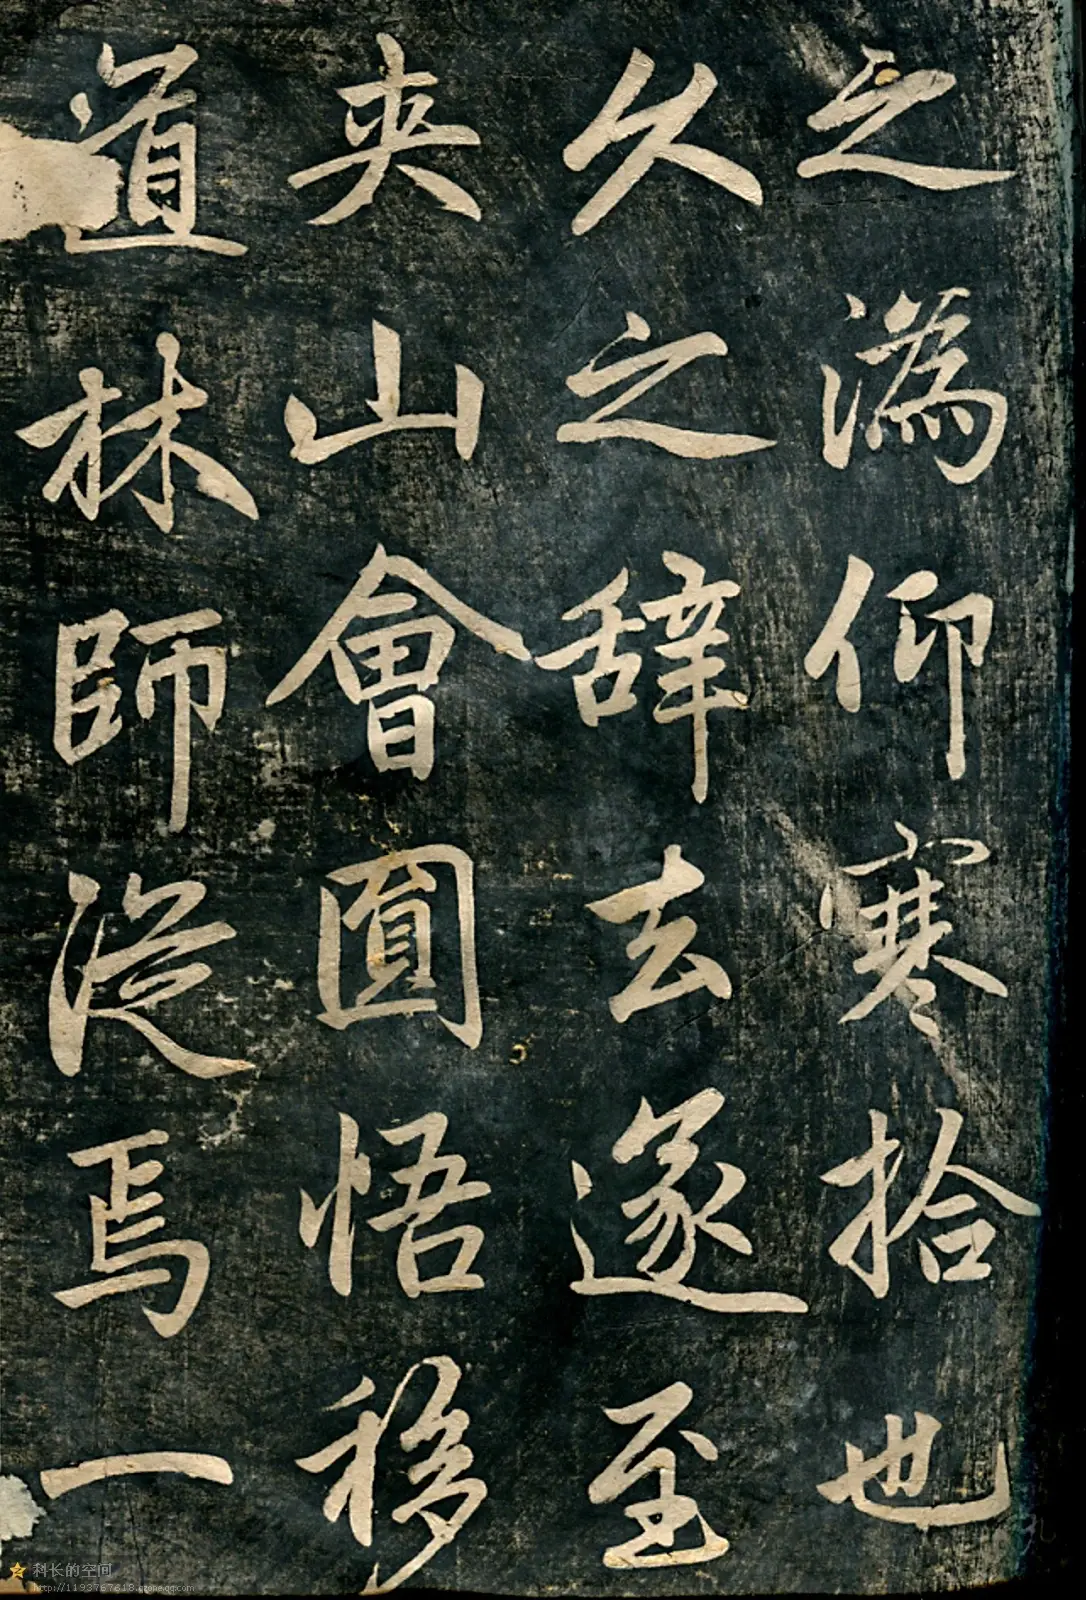 之溈仰寒拾也
久之辭去遂至
夾山會圓悟移
道林師從焉一
科长的空间
http://1193767618.qzone.qq.com